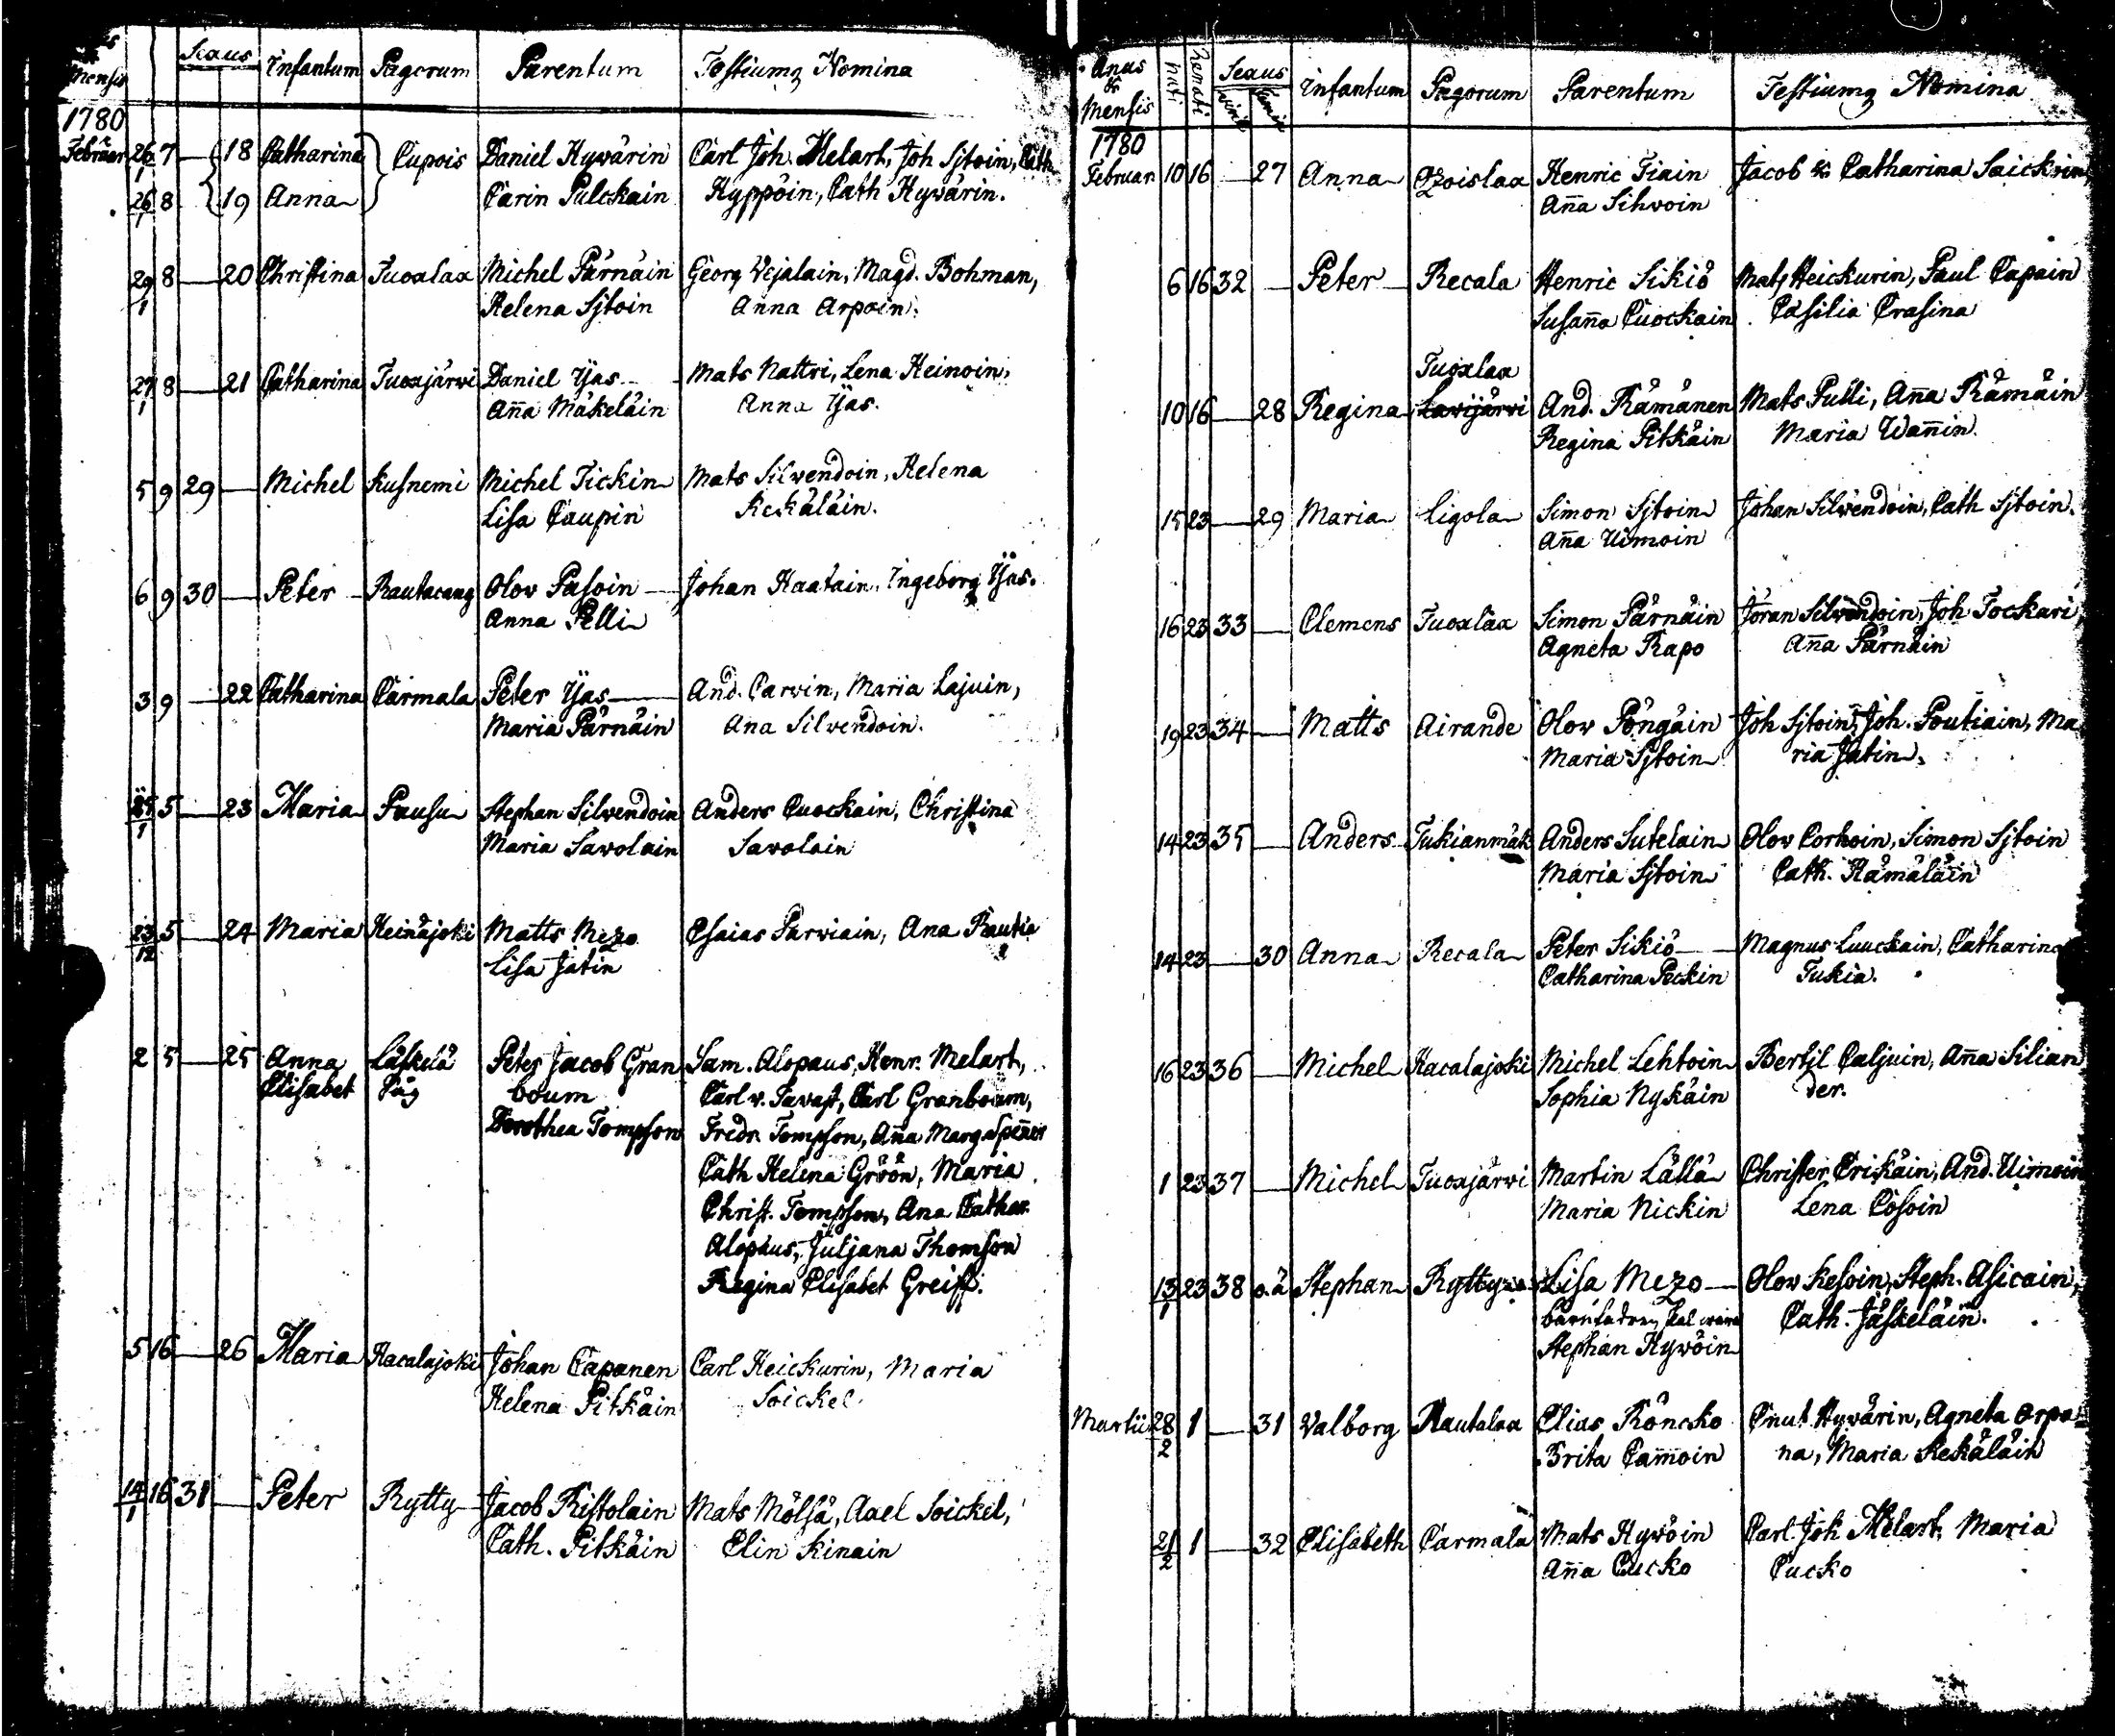 Mensis Sexus Infantum Pagorum Parentum Testiumq Nomina
1780
Februar 26/1 7 — 18 Catharina Cupois Daniel Hyvärin Carl Joh. Melart, Joh Sjtoin, Cath
26/1 8 19 Anna Carin Pulckain Hyppöin, Cath Hyvärin.
29/1 8 — 20 Christina Tuoxlax Michel Pärnäin Georg Vejalain, Magd. Bohman,
Helena Sjtoin Anna Arpoin.
27/1 8 — 21 Catharina Tuoxjärwi Daniel Yjas Mats Nattri, Lena Heinoin,
Aña Mäkeläin Anna Yjas.
5 9 29 — Michel Kusnemi Michel Tickin Mats Silvendoin, Helena
Lisa Caupin Kekäläin.
6 9 30 — Peter Rautacang Olov Pasoin Johan Haatain, Ingeborg Yjas.
Anna Pelli
3 9 — 22 Catharina Carmala Peter Yjas And. Carvin, Maria Lajuin,
Maria Pärnäin Ana Silvendoin.
25/1 5 — 23 Maria Pausu Stephan Silvendoin Anders Cuockain, Christina
Maria Savolain Savolain
23/12 5 — 24 Maria Heinäjoki Matts Mezo Esaias Parviain, Ana Rautia
Lisa Jatin
2 5 — 25 Anna Läskelä Peter Jacob Gran Sam. Alopæus, Henr. Melart,
Elisabet Såg boum Carl v. Tavast, Carl Granboum,
Dorothea Tompson Fredr. Tompson, Aña Marg
Cath Helena Gröön, Maria
Christ. Tompson, Ana Cathar.
Alopæus, Juljana Thomson
Regina Elisabet Greiff.
5 16 — 26 Maria Hacalajoki Johan Capanen Carl Heickurin, Maria
Helena Pitkäin Soickel.
14/1 16 31 — Peter Rytty Jacob Ristolain Mats Mölsä, Axel Soickel,
Cath. Pitkäin Elin Kinain
Anus & Mensis Nati Renati Sexus Infantum Pagorum Parentum Testiumq Nomina
1780
Februar 10 16 — 27 Anna Ozoislax Henric Tiain Jacob & Catharina Saickoin,
Aña Sihvoin
6 16 32 — Peter Recala Henric Sikiö Mats Heickurin, Paul Capain
Susaña Cuockain Casilia Crasina
Tuoxlax
10 16 — 28 Regina Lavijärvi And. Rämänen Mats Pulli, Aña Rämäin
Regina Pitkäin Maria Wañin.
15 23 — 29 Maria Ligola Simon Sjtoin Johan Silvendoin, Cath Sjtoin.
Aña Uimoin
16 23 33 — Clemens Tuoxlax Simon Pärnäin Jöran Silvendoin, Joh Tockari,
Agneta Rapo Aña Pärnäin
19 23 34 — Matts Airande Olov Pöngäin Joh Sjtoin, Joh. Poutiain, Ma
Maria Sjtoin ria Jatin.
14 23 35 — Anders Tukianmäk Anders Sutelain Olov Corhoin, Simon Sjtoin
Maria Sjtoin Cath. Hämäläin
14 23 — 30 Anna Recala Peter Sikiö Magnus Luuckain, Catharina
Catharina Peckin Tukia.
16 23 36 — Michel Hacalajoki Michel Lehtoin Bertil Caljuin, Aña Silian
Sophia Nykäin der.
1 23 37 — Michel Tuoxjärwi Martin Lällä Christer Erikäin, And. Uimoin
Maria Nickin Lena Cosoin
13/1 23 38 o.ä Stephan Rytty Lisa Mezo Olov Kesoin, Steph. Asicain,
barnfadren skal wara Cath. Jäskeläin.
Stephan Hyvöin
Martii 28/2 1 — 31 Valborg Rautalax Elias Röncko Cnut Hyvärin, Agneta Orpa=
Brita Cam̄oin na, Maria Kekäläin
21/2 1 — 32 Elisabeth Carmala Mats Hyvöin Carl Joh Melart, Maria
Aña Cucko Cucko